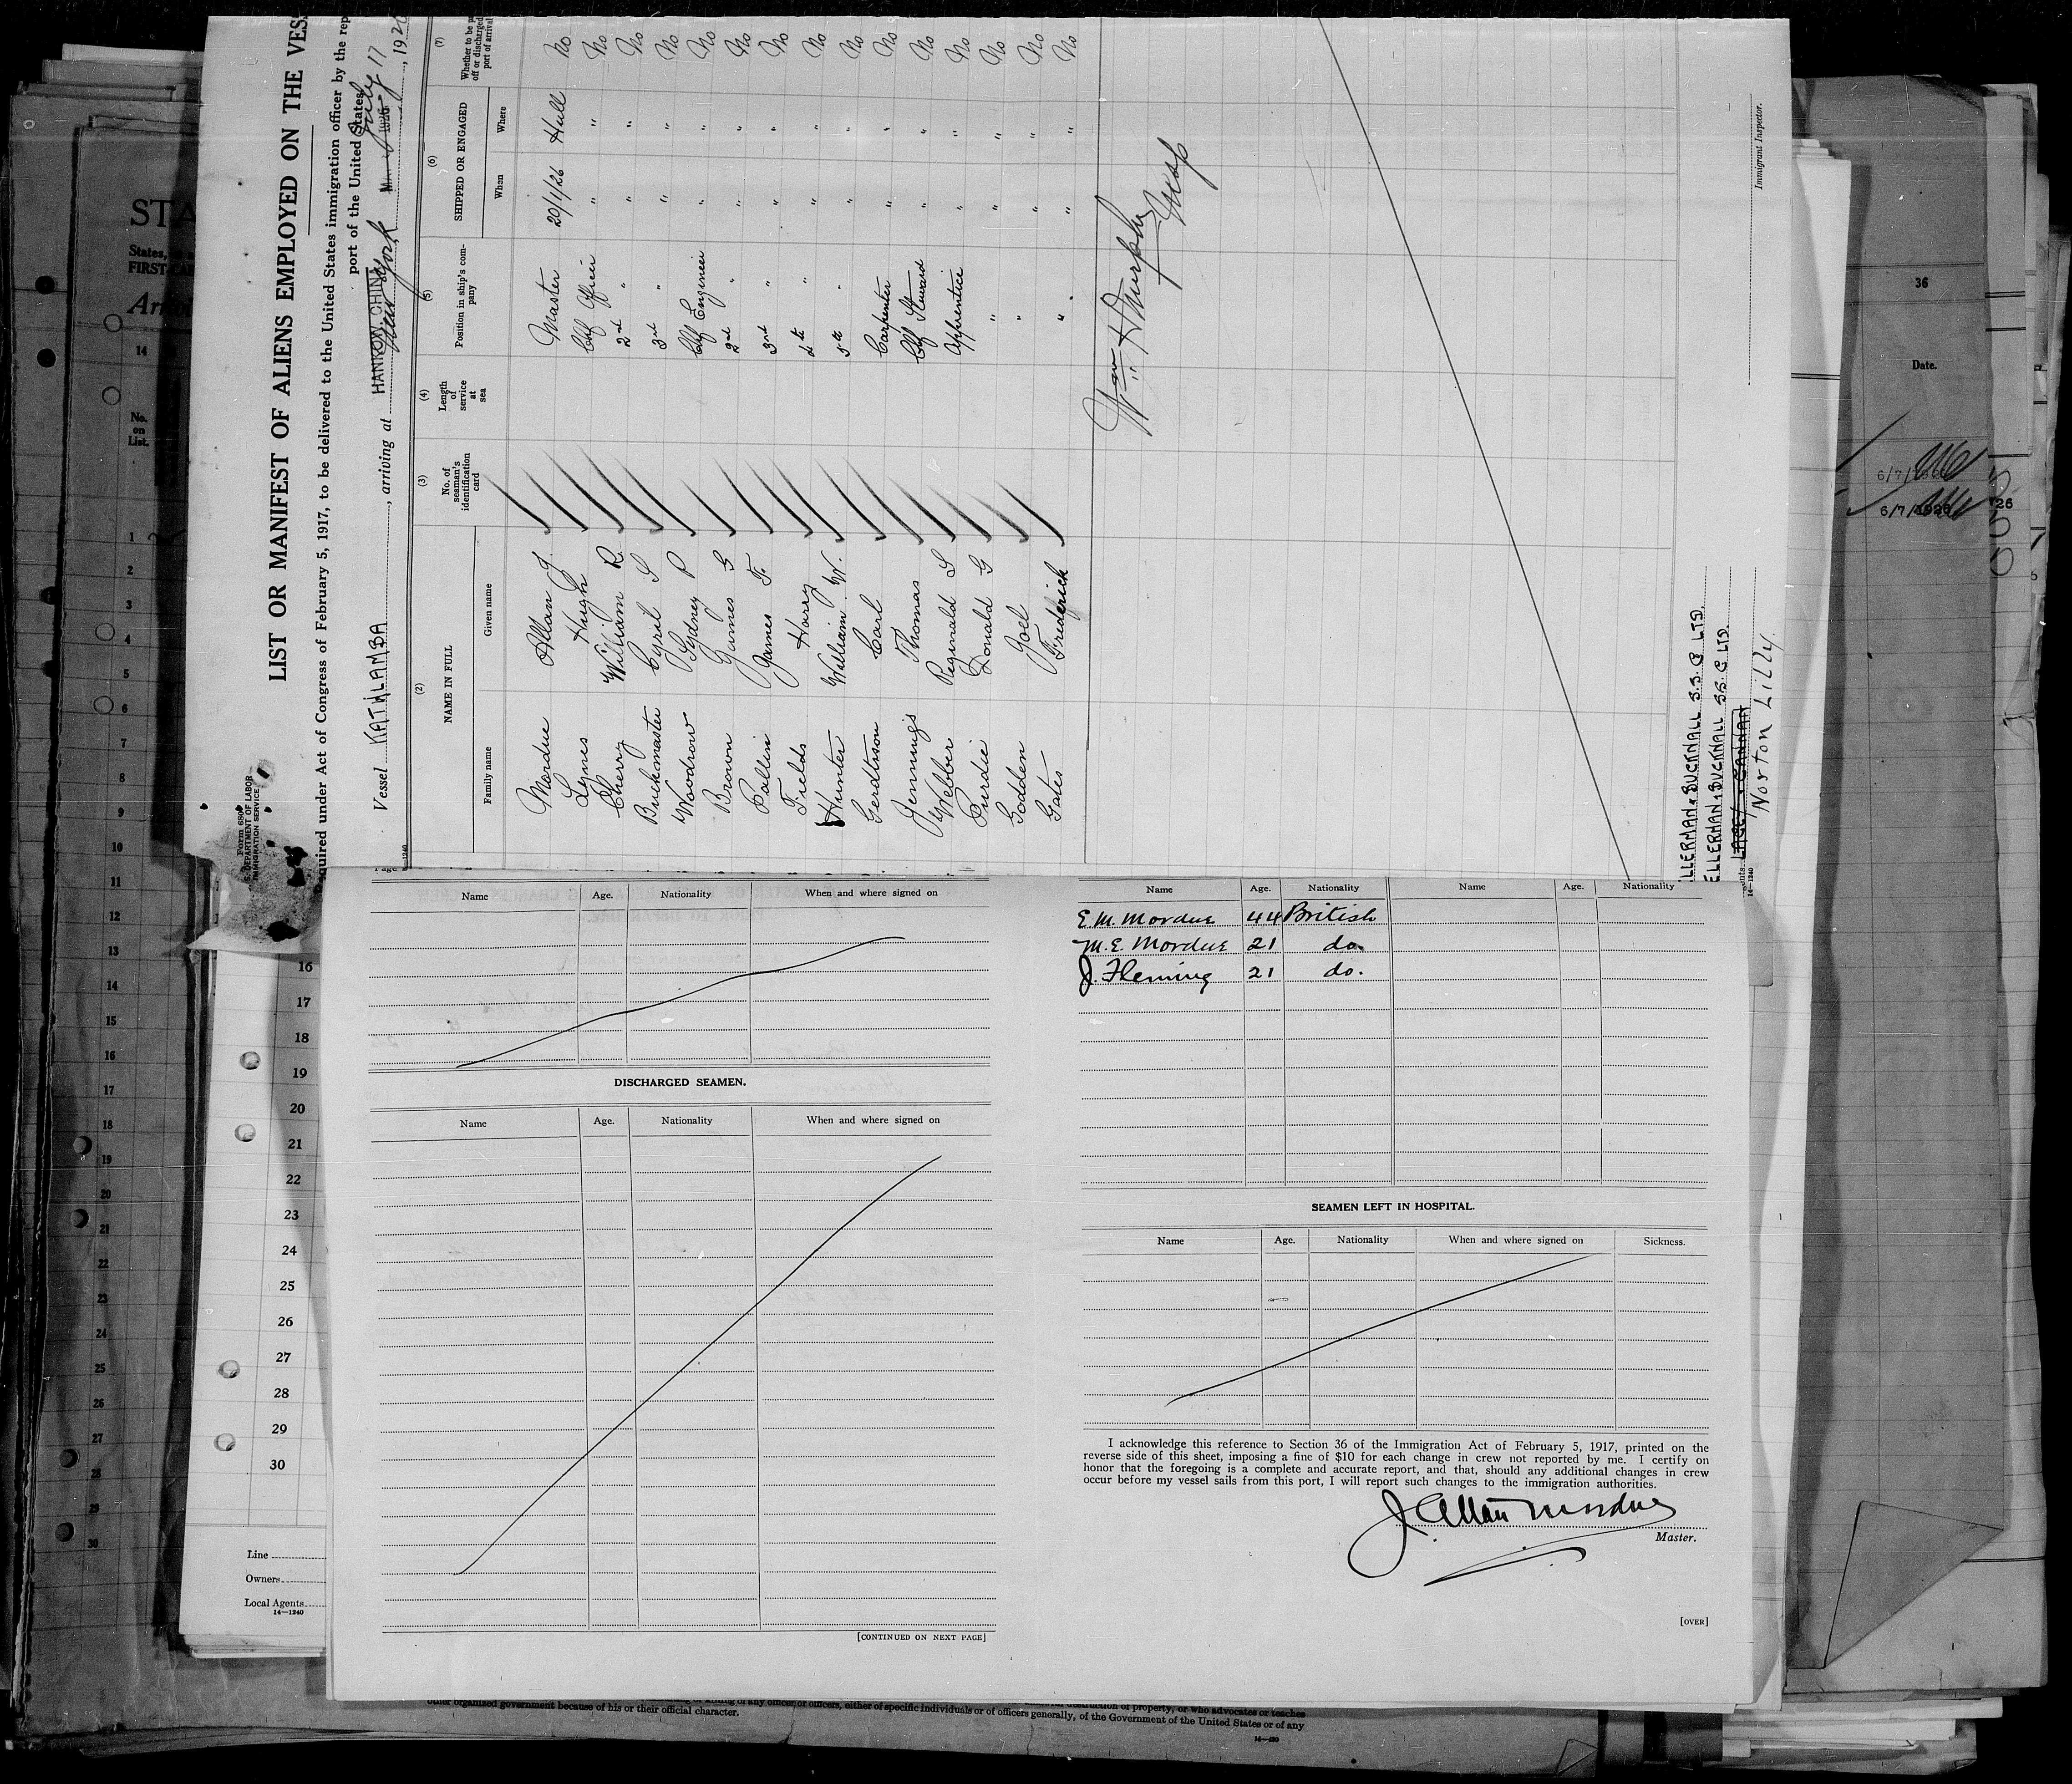 LIST OR MANIFEST OF ALIENS EMPLOYED ON THE VES
Required under Act of Congress of February 5, 1917, to be delivered to the United States immigration officer by the rep
port of the United States
Form 680
U.S. DEPARTMENT OF LABOR
IMMIGRATION SERVICE
Vessel KATHLAMBA, arriving at HANKOW, CHINA New York July 17, 192
14—1240
(2) (3) (4) (5) (6) (7)
NAME IN FULL No. of seaman's identification card Length of service at sea Position in ship's company SHIPPED OR ENGAGED Whether to be
off or discharged
port of arrival
Family name Given name When Where
Mordue Allan J. Master 20/1/26 Hull No
Lynes Hugh Chf Officer " " No
Cherry William R. 2nd " " " No
Buckmaster Cyril S 3rd " " " No
Woodrow Sydney P Chf Engineer " " No
Brown James G 2nd " " " No
Pallin James F. 3rd " " " No
Fields Harry 4th " " " No
Hunter William W. 5th " " " No
Gerdtson Carl Carpenter " " No
Jennings Thomas Chf Steward " " No
Webber Reginald S Apprentice " " No
Purdie Donald G " " " No
Godden Joel " " " No
Gates Frederick " " " No
Wm H Murphy
Insp
Immigrant Inspector.
ELLERMAN & BUCKNALL S.S. Co LTD.
ELLERMAN & BUCKNALL SS. Co LTD.
Norton Lilly.
14—1240
STA
States,
FIRST-CA
Arri
14
No.
on
List.
1
2
3
4
5
6
7
8
9
10
11
12
13
14
15
16
17
18
19
20
21
22
23
24
25
26
27
28
29
30
36
Date.
6/7/1926
6/7/1926
26
16
17
18
19
20
21
22
23
24
25
26
27
28
29
30
Line
Owners
Local Agents
14—1240
Name Age. Nationality When and where signed on
DISCHARGED SEAMEN.
Name Age. Nationality When and where signed on
[CONTINUED ON NEXT PAGE]
Name Age. Nationality Name Age. Nationality
E.M. Mordue 44 British
M.E. Mordue 21 do.
J. Fleming 21 do.
SEAMEN LEFT IN HOSPITAL.
Name Age. Nationality When and where signed on Sickness.
I acknowledge this reference to Section 36 of the Immigration Act of February 5, 1917, printed on the
reverse side of this sheet, imposing a fine of $10 for each change in crew not reported by me. I certify on
honor that the foregoing is a complete and accurate report, and that, should any additional changes in crew
occur before my vessel sails from this port, I will report such changes to the immigration authorities.
J. Allan Mordue
Master.
[OVER]
of any officer or officers, either of specific individuals or of officers generally, of the Government of the United States or of any
other organized government because of his or their official character.
destruction of property, or who advocates or teaches